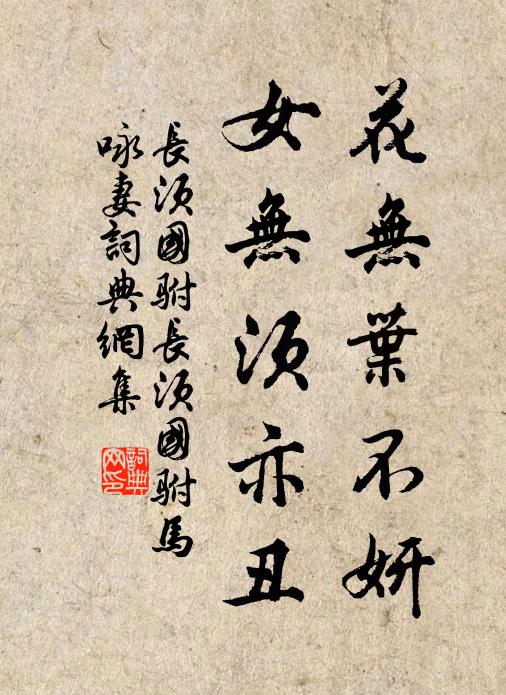 花無葉不妍
女無須亦丑
長須國駙長須國駙馬
咏妻詞典網集
詞典網印